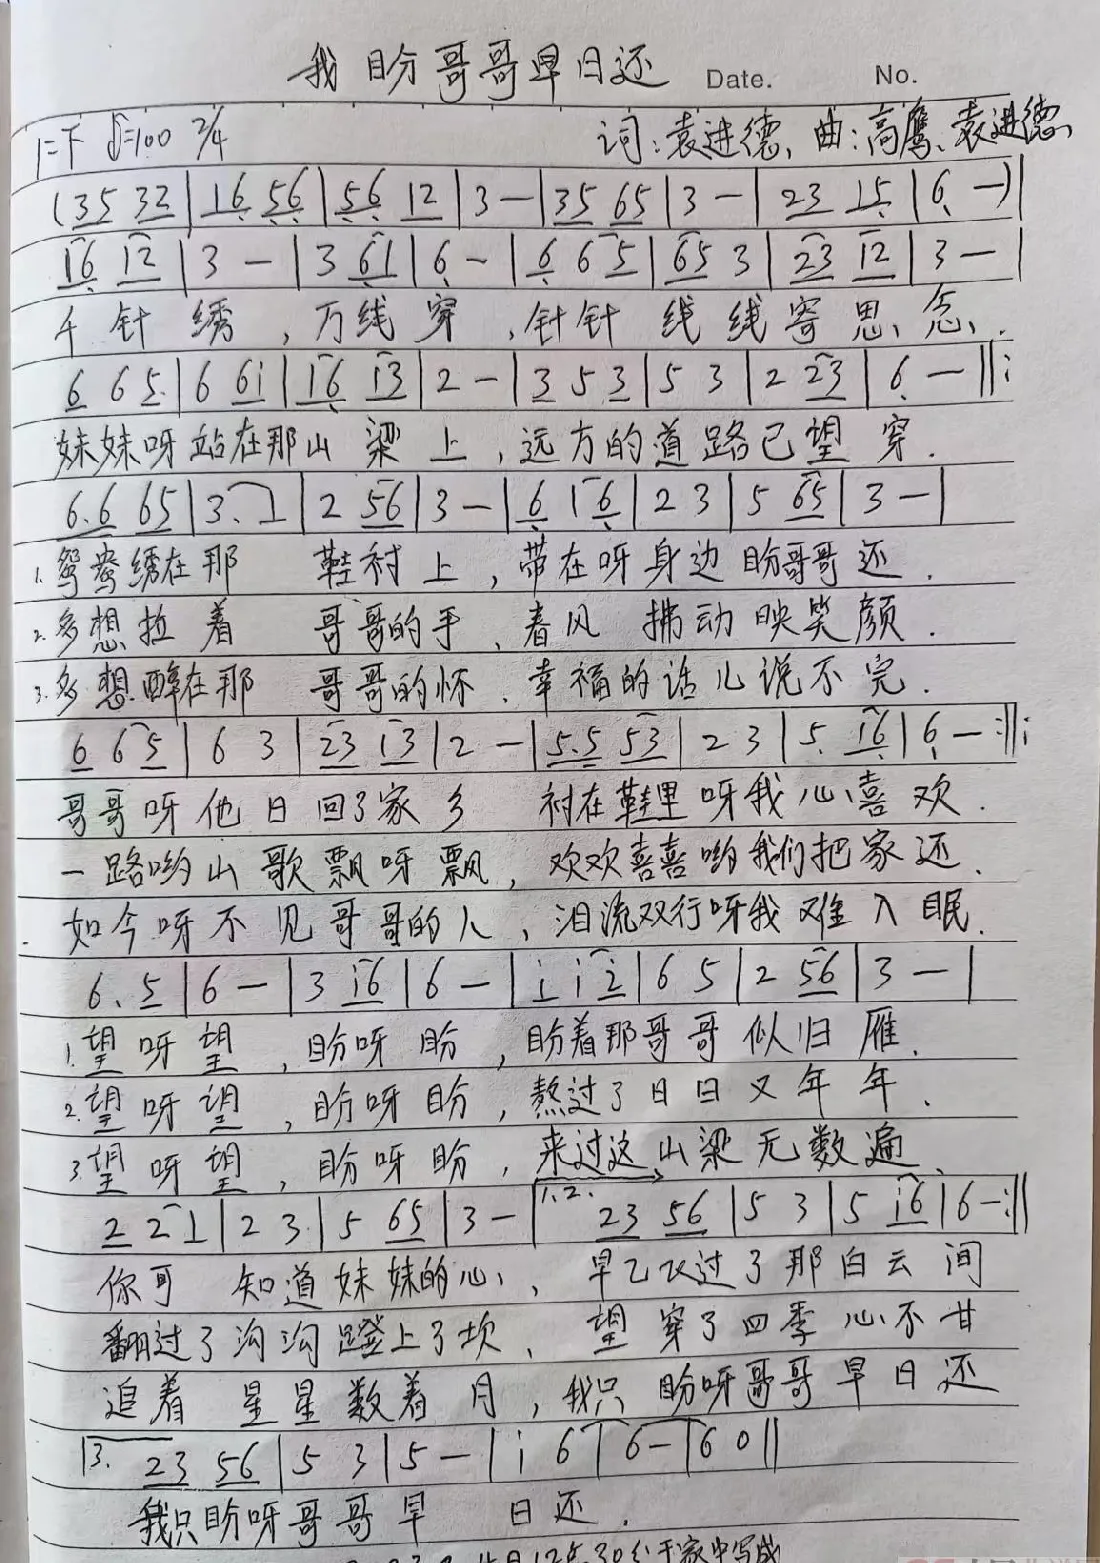 我盼哥哥早日还 Date. No.
1=F ♩=100 2/4 词:袁进德、曲:高鹰、袁进德
(35 32|16 56|56 12|3 —|35 65|3 —|23 15|6 —)|
16 12|3 —|3 61|6 —|6 6 5|65 3|23 12|3 —|
千针绣,万线穿,针针线线寄思念.
6 6 5|6 6i|16 13|2 —|3 5 3|5 3|2 23|6 —‖:
妹妹呀站在那山梁上,远方的道路已望穿.
6.6 65|3. 1|2 56|3 —|6 1 6|2 3|5 65|3 —|
1.鸳鸯绣在那鞋衬上,带在呀身边盼哥哥还.
2.多想拉着哥哥的手,春风拂动映笑颜.
3.多想醉在那哥哥的怀、幸福的话儿说不完.
6 6 5|6 3|23 13|2 —|5.5 53|2 3|5. 16|6 —:‖:
哥哥呀他日回了家乡 衬在鞋里呀我心喜欢.
一路哟山歌飘呀飘,欢欢喜喜哟我们把家还.
如今呀不见哥哥的人,泪流双行呀我难入眠.
6. 5|6 —|3 i6|6 —|i i 2|6 5|2 56|3 —|
1.望呀望,盼呀盼,盼着那哥哥似归雁.
2.望呀望,盼呀盼,熬过了日日又年年.
3.望呀望,盼呀盼,来过这山梁无数遍.
2 2 1|2 3|5 65|3 —|1.2. 23 56|5 3|5 i6|6 —:‖
你可知道妹妹的心,早已飞过了那白云间
翻过了沟沟蹬上了坎、望穿了四季心不甘
追着星星数着月,我只盼呀哥哥早日还
3. 23 56|5 3|5 —|i 6|6 —|6 0‖
我只盼呀哥哥早日还.
于家中写成